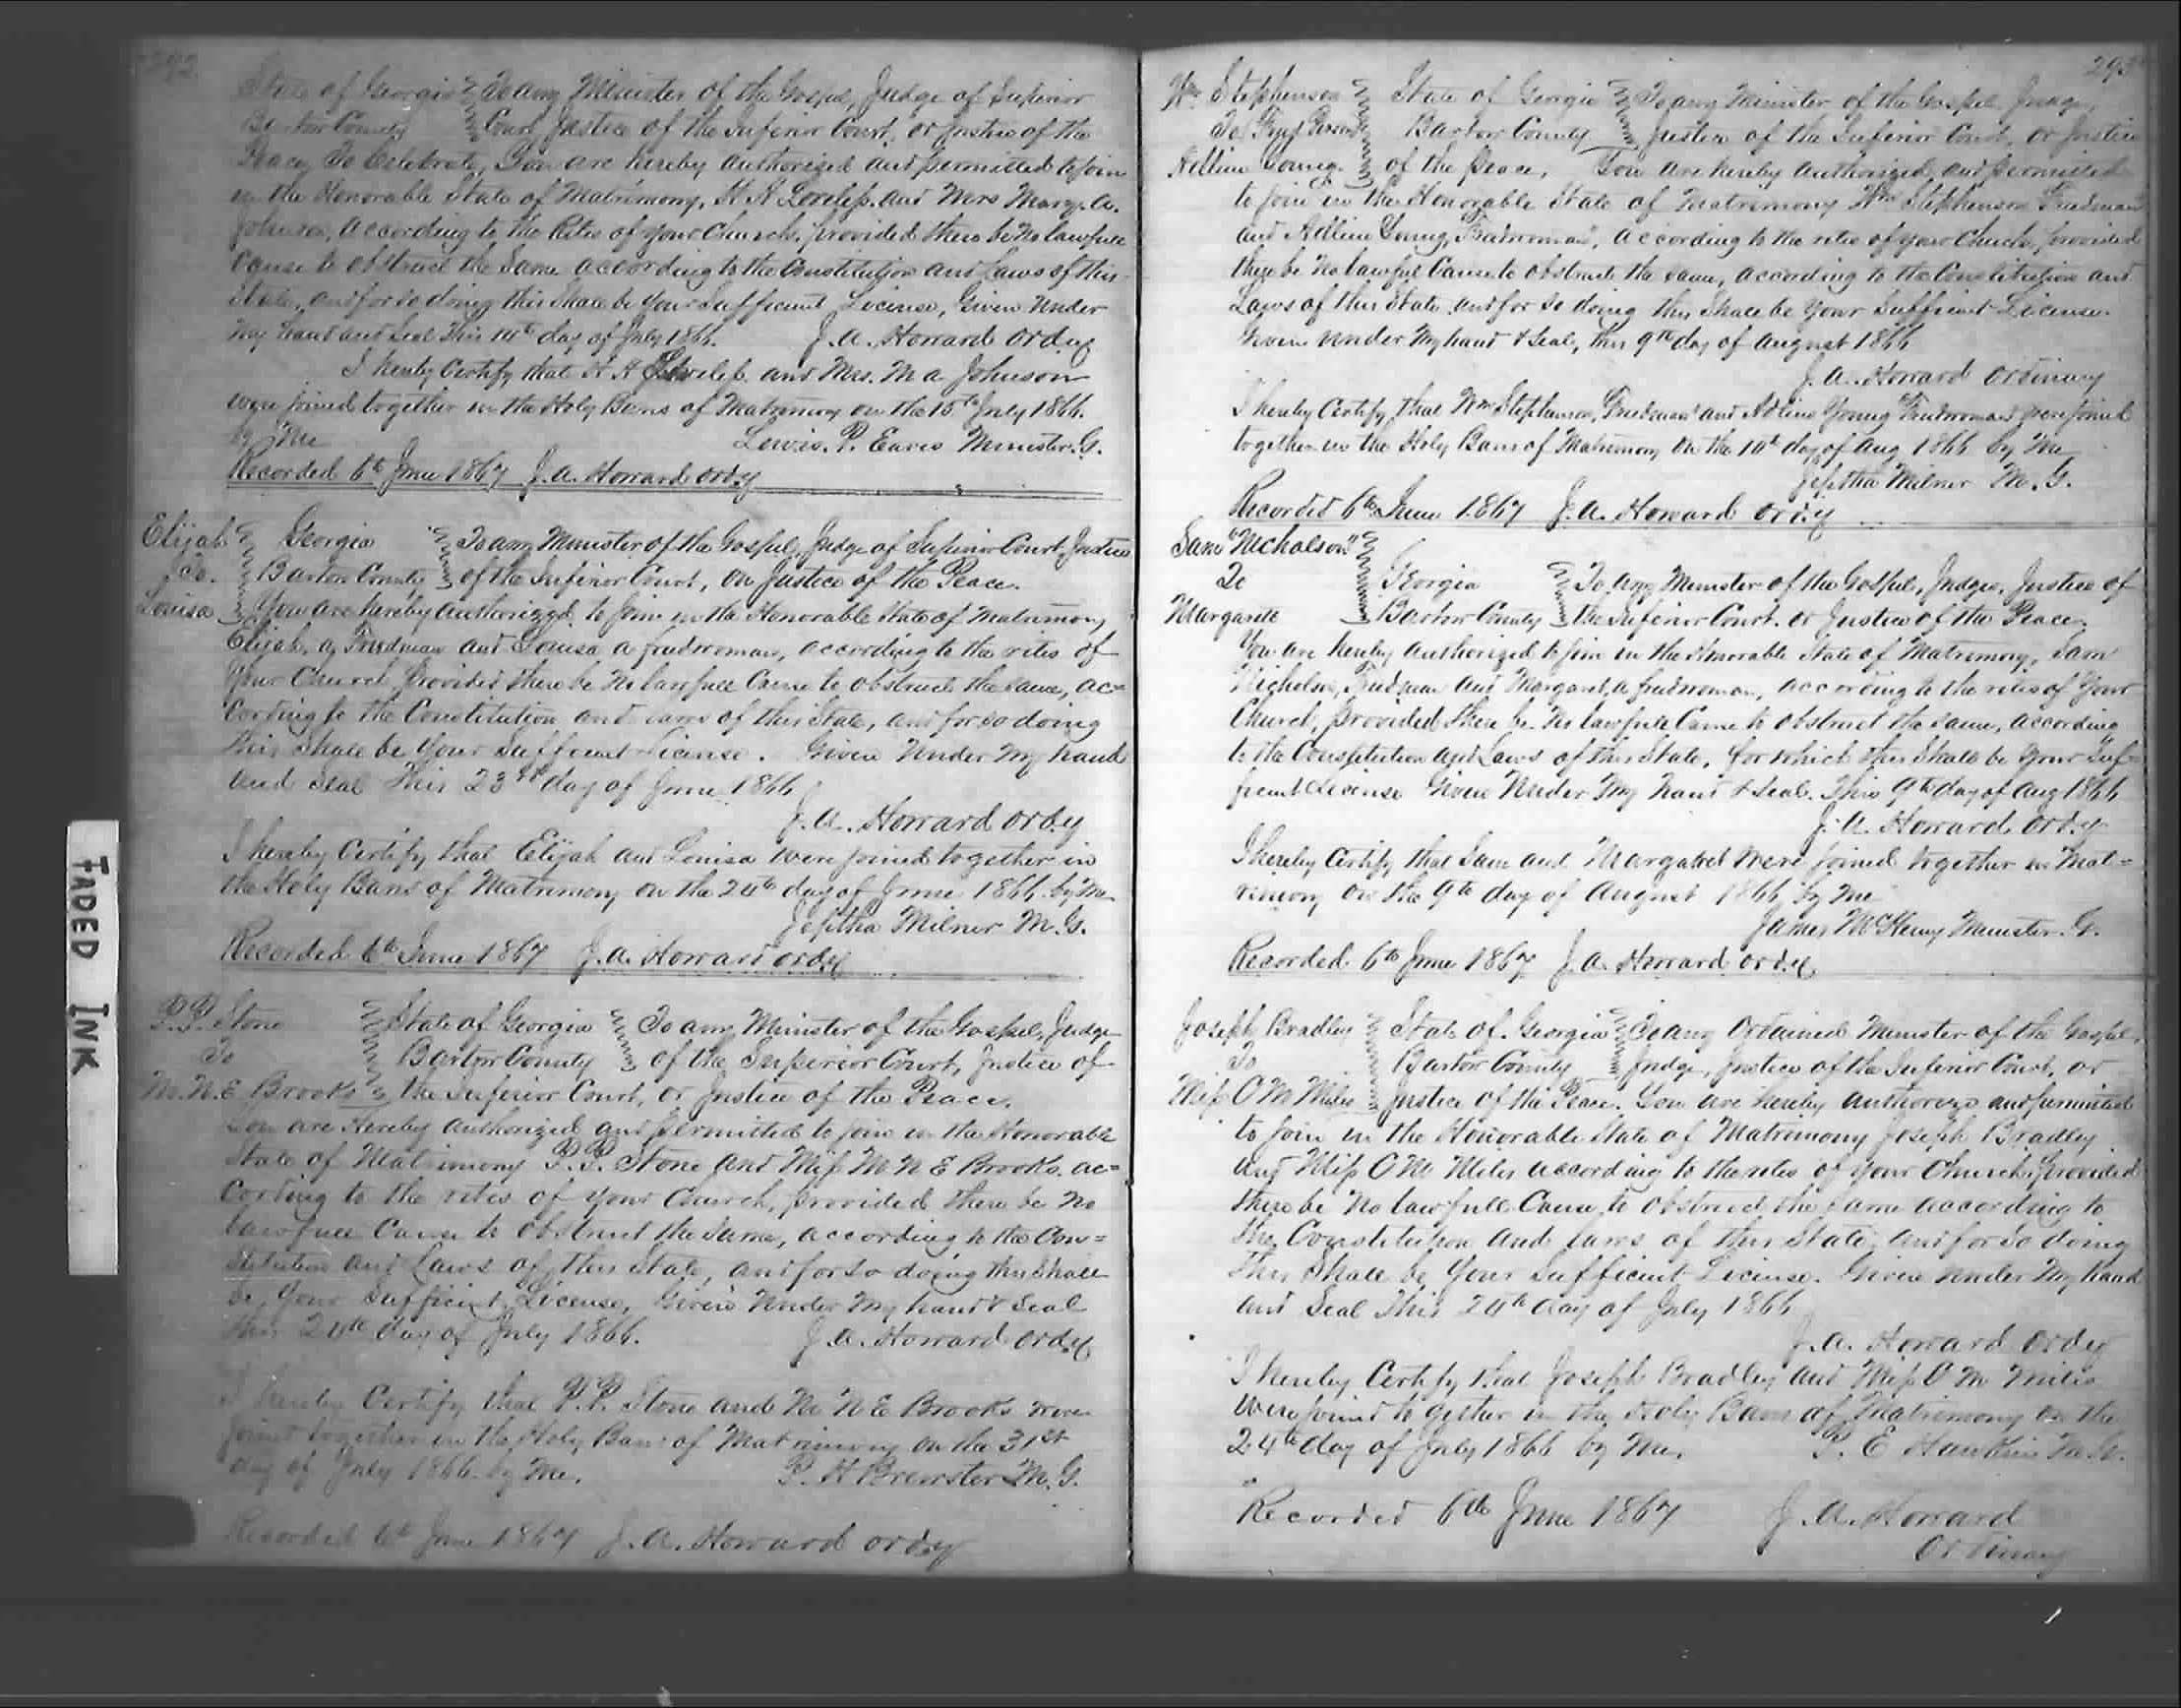 292
State of Georgia To any Minister of the Gospel, Judge of Superior
Bartow County Court, Justice of the Inferior Court, or Justice of the
Peace, To Celebrate, You are hereby authorized and permitted to join
in the Honorable State of Matrimony, and Mrs Mary. A.
Johnson, according to the Rites of your Church, provided there be no lawfull
cause to obstruct the same according to the Constitution and Laws of this
State, and for so doing this shall be your sufficient License, Given under
my hand and Seal this 14th day of July 1866. J. A. Howard Ordy
I hereby Certify that and Mrs. M A Johnson
were joined together in the Holy Bans of Matrimony on the 15th July 1866.
by Me Lewis. P. Eaves Minister. G.
Recorded 6th June 1867 J. A. Howard Ordy
Elijah Georgia To any Minister of the Gospel, Judge of Superior Court, Justice
To. Bartow County of the Inferior Court, or Justice of the Peace.
Louisa You are hereby authorized to join in the Honorable State of Matrimony
Elijah, a Freedman and Louisa a freedwoman, according to the rites of
Your Church, Provided there be no lawfull Cause to obstruct the same, ac=
cording to the Constitution and Laws of this State, and for so doing
this shall be Your Sufficient License. Given Under My hand
and Seal this 23rd day of June 1866
J. A. Howard Ordy
I hereby Certify that Elijah and Louisa were joined together in
the Holy Bans of Matrimony on the 24th day of June 1866 by Me
Jeptha Milner M. G.
Recorded 6th June 1867 J. A. Howard Ordy
P. P. Stone State of Georgia To any Minister of the Gospel, Judge
To Bartow County of the Superior Court, Justice of
M. N. E Brooks the Inferior Court, or Justice of the Peace.
You are Hereby authorized and permitted to join in the Honorable
State of Matrimony P. P. Stone and Miss M N E Brooks. ac=
cording to the rites of your Church, provided there be no
lawfull Cause to obstruct the same, according to the Con=
stitution and Laws of this State, and for so doing this shall
be Your Sufficient License, Given Under My hand & Seal
this 24th day of July 1866. J. A. Howard Ordy
I hereby Certify that P. P. Stone and M N E Brooks were
joined together in the Holy Bans of Matrimony on the 31st
day of July 1866 by Me. P. H Brewster M. G.
Recorded 6th June 1867 J. A. Howard Ordy
293
Wm Stephenson State of Georgia To any Minister of the Gospel, Judge,
To Bartow County Justice of the Inferior Court, or Justice
Adline Young. of the Peace, You are hereby authorized, and permitted
to join in the Honorable State of Matrimony Wm Stephenson Freedman
and Adline Young, Freedwoman, according to the rites of your Church, provided
there be no lawful Cause to obstruct the same, according to the Constitution and
Laws of this State and for so doing this shall be Your Sufficient License.
Given under My hand & Seal, this 9th day of August 1866
J. A. Howard Ordinary
I hereby Certify that Wm Stephenson, Freedman and Adline Young Freedwoman were joined
together in the Holy Bans of Matrimony on the 10th day of Aug 1866 by Me
Jeptha Milner M. G.
Recorded 6th June 1867 J. A. Howard Ordy
Sam "Nicholson"
To Georgia To any Minister of the Gospel, Judge, Justice of
Margarett Bartow County the Inferior Court, or Justice of the Peace.
You are hereby authorized to join in the Honorable State of Matrimony, Sam
Nicholson, Freedman and Margaret, a freedwoman, according to the rites of Your
Church, provided there be no lawfull Cause to obstruct the same, according
to the Constitution and Laws of this State, for which this shall be Your Suf-
ficient License Given Under My hand & Seal. This 9th day of Aug 1866
J. A. Howard Ordy
I hereby Certify that Sam and Margaret were joined together in Mat=
rimony on the 9th day of August 1866 by Me
James McHenry Minister. G.
Recorded 6th June 1867 J. A. Howard Ordy
Joseph Bradley State of Georgia To any Ordained Minister of the Gospel,
To Bartow County Judge, Justice of the Inferior Court, or
Miss O M Miles Justice of the Peace. You are hereby authorize and permitted
to join in the Honorable State of Matrimony Joseph Bradley
and Miss O M. Miles according to the rites of your Church, provided
there be no lawfull Cause to obstruct the same according to
the Constitution and Laws of this State, and for so doing
this shall be Your Sufficient License. Given Under My hand
and Seal This 24th day of July 1866
J. A. Howard Ordy
I hereby Certify that Joseph Bradley and Miss O M Miles
were joined to gether in the Holy Bans of Matrimony on the
24th day of July 1866 by Me. P. E Hawkins M. G.
Recorded 6th June 1867 J. A. Howard
Ordinary
FADED INK